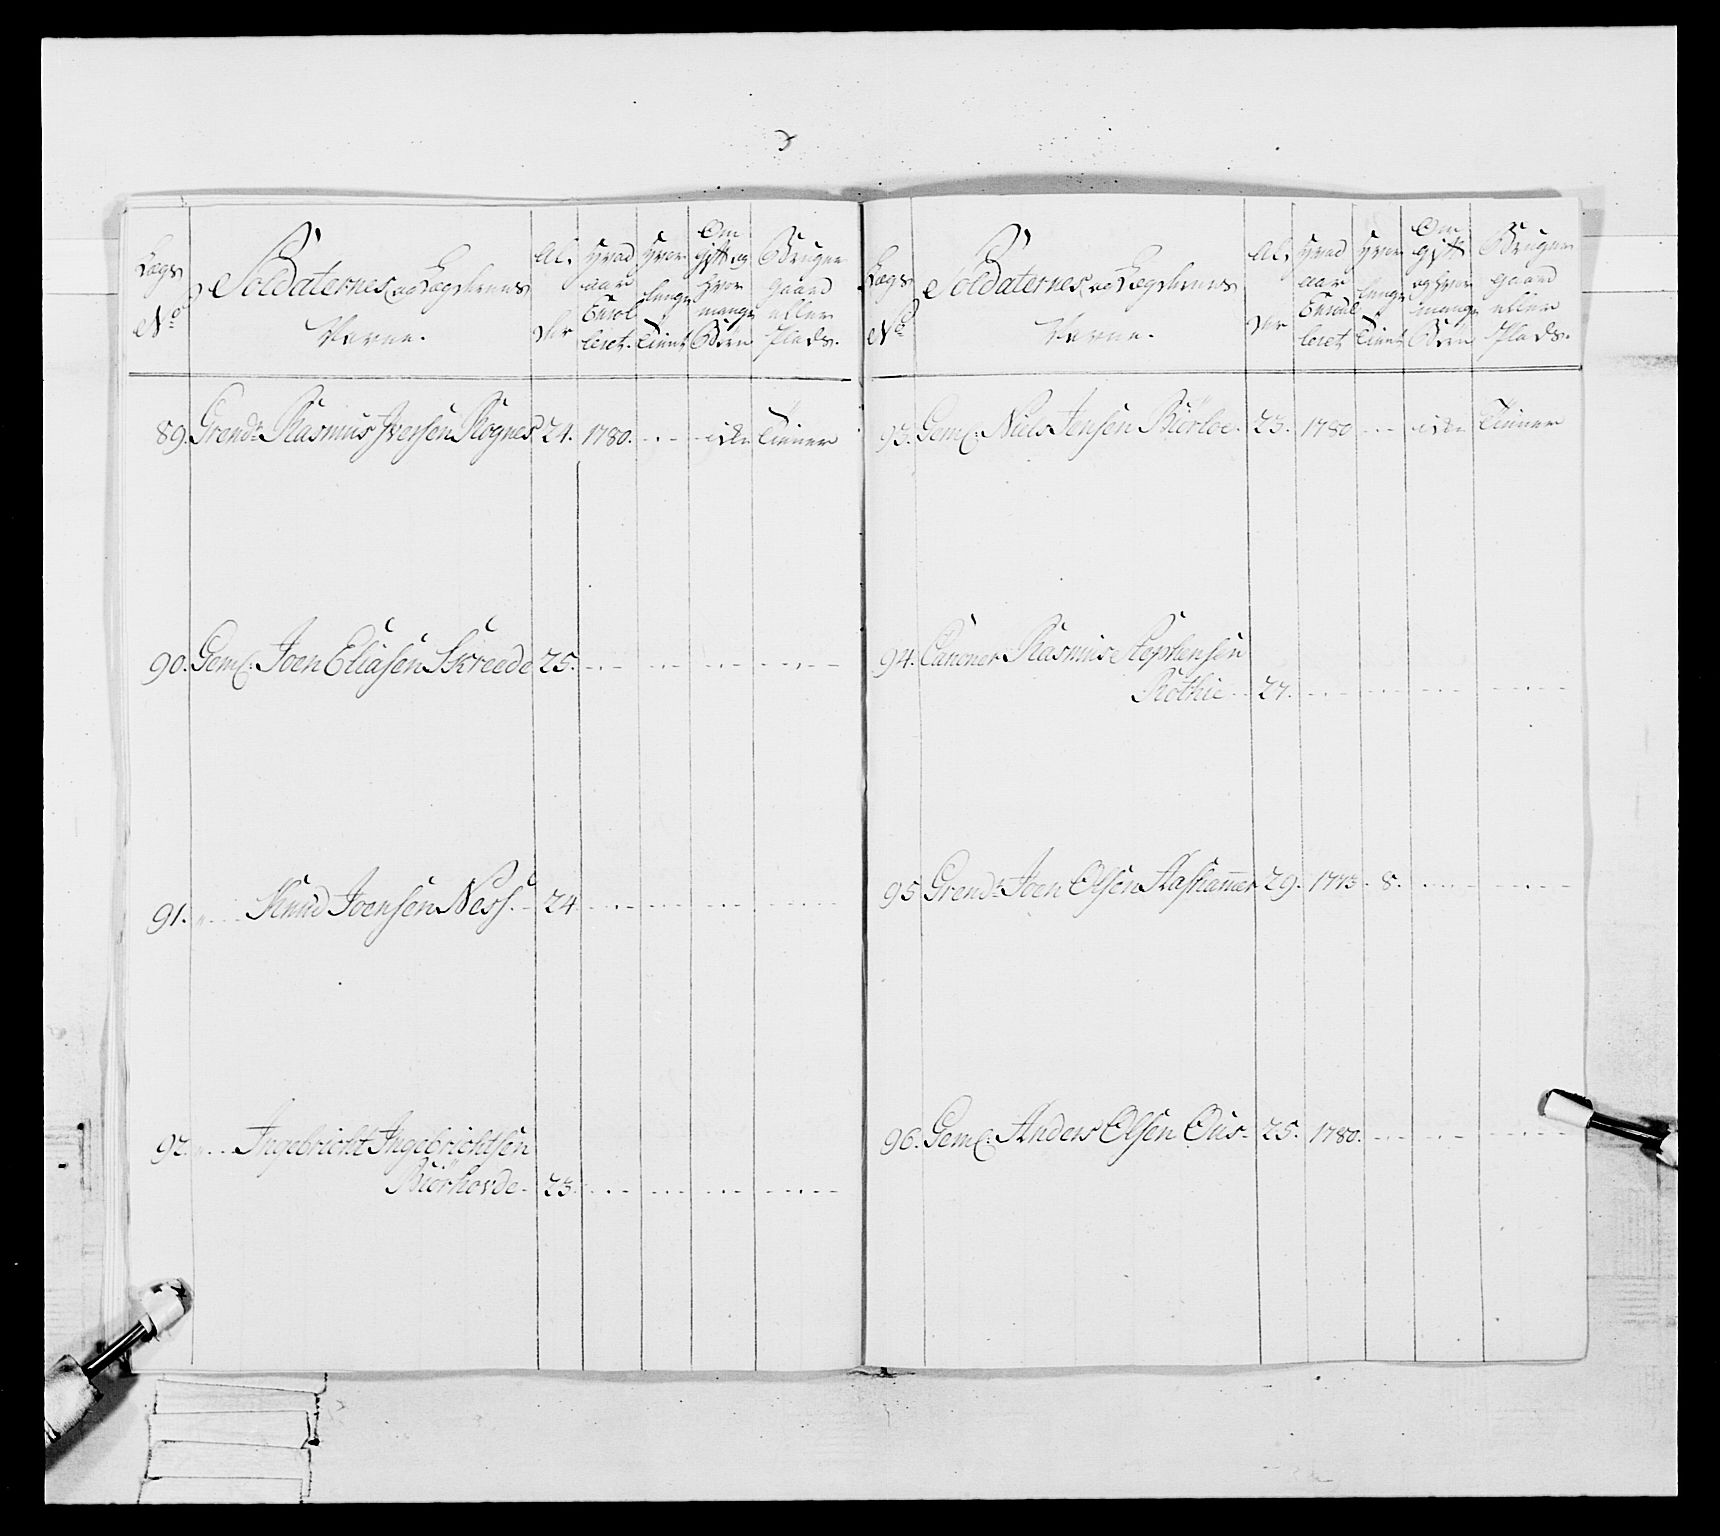 Lægs No
Soldaternes og Lægdernes Navne.
Al der
Hvad aar Enrol leret.
Hvor lenge Tient
Om gift og hvor mange Børn
Bruger gaard eller Plads.
89. Grendr Rasmus Iversen Rognes 24. 1780. - - - icke Tiener
90. Geml: Joen Eliasen Skreede 25. - - -
91. " - - - Knud Joensen Ness. - 24 - - -
92. " - - - Ingebricht Ingebrichtsen
Biörhovde - 23. - - -
Lægs No
Soldaternes og Lægdernes Navne.
Al der
Hvad aar Enroul leret
Hvor lenge Tient
Om gift og hvor mange Børn
Bruger gaard eller Plads.
93. Geml: Niels Jensen Biörloe. 23. 1780 - - - icke Tiener
94. Canoner Rasmus Stephensen
Rothie - - 27. - - -
95 Grendr Joen Olsen Aashammer 29. 1773. 8. - - -
96. Geml: Anders Olsen Ous - 25. 1780. - - -